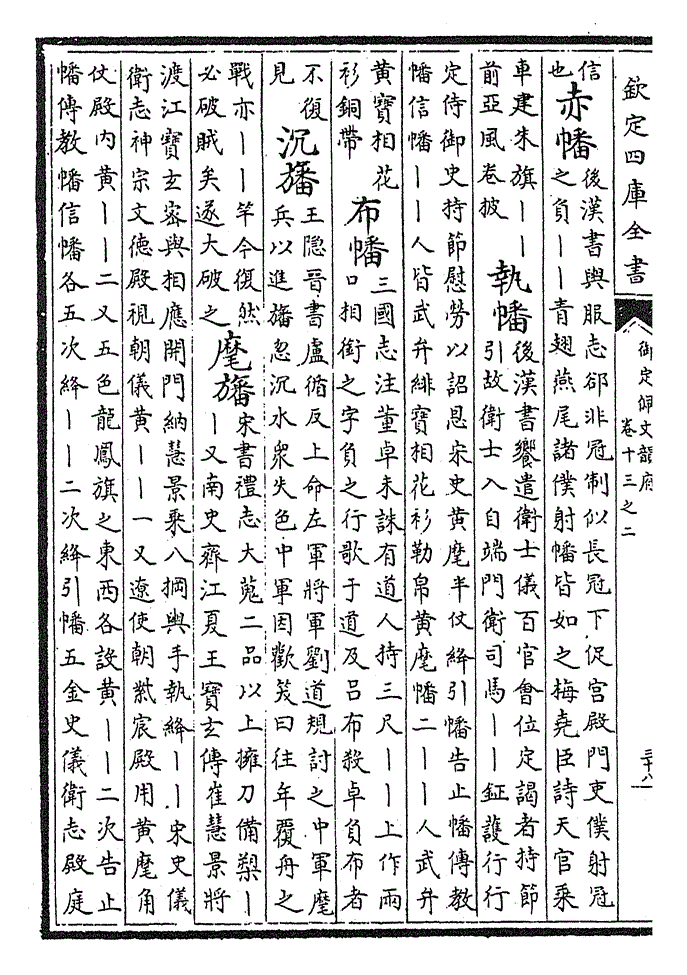 欽定四庫全書
御定佩文韻府
卷十三之二
三十八
信
也
赤幡
後漢書輿服志郤非冠制似長冠下促宮殿門吏僕射冠
之負丨丨青翅燕尾諸僕射幡皆如之梅堯臣詩天官乘
車建朱旗丨丨
前亞風卷披
執幡
後漢書饗遣衛士儀百官會位定謁者持節
引故衛士入自端門衛司馬丨丨鉦護行行
定侍御史持節慰勞以詔恩宋史黃麾半仗絳引幡告止幡傳教
幡信幡丨丨人皆武弁緋寶相花衫勒帛黃麾幡二丨丨人武弁
黃寶相花
衫銅帶
布幡
三國志注董卓未誅有道人持三尺丨丨上作兩
口相銜之字負之行歌于道及呂布殺卓負布者
不復
見
沉旛
王隱晉書盧循反上命左軍將軍劉道規討之中軍麾
兵以進旛忽沉水衆失色中軍因歡笑曰往年覆舟之
戰亦丨丨竿今復然
必破賊矣遂大破之
麾旛
宋書禮志大蒐二品以上擁刀備槊丨
丨又南史齊江夏王寶玄傳崔慧景將
渡江寶玄密與相應開門納慧景乘八掆輿手執絳丨丨宋史儀
衛志神宗文德殿視朝儀黃丨丨一又遼使朝紫宸殿用黃麾角
仗殿內黃丨丨二又五色龍鳳旗之東西各設黃丨丨二次告止
幡傳教幡信幡各五次絳丨丨二次絳引幡五金史儀衛志殿庭